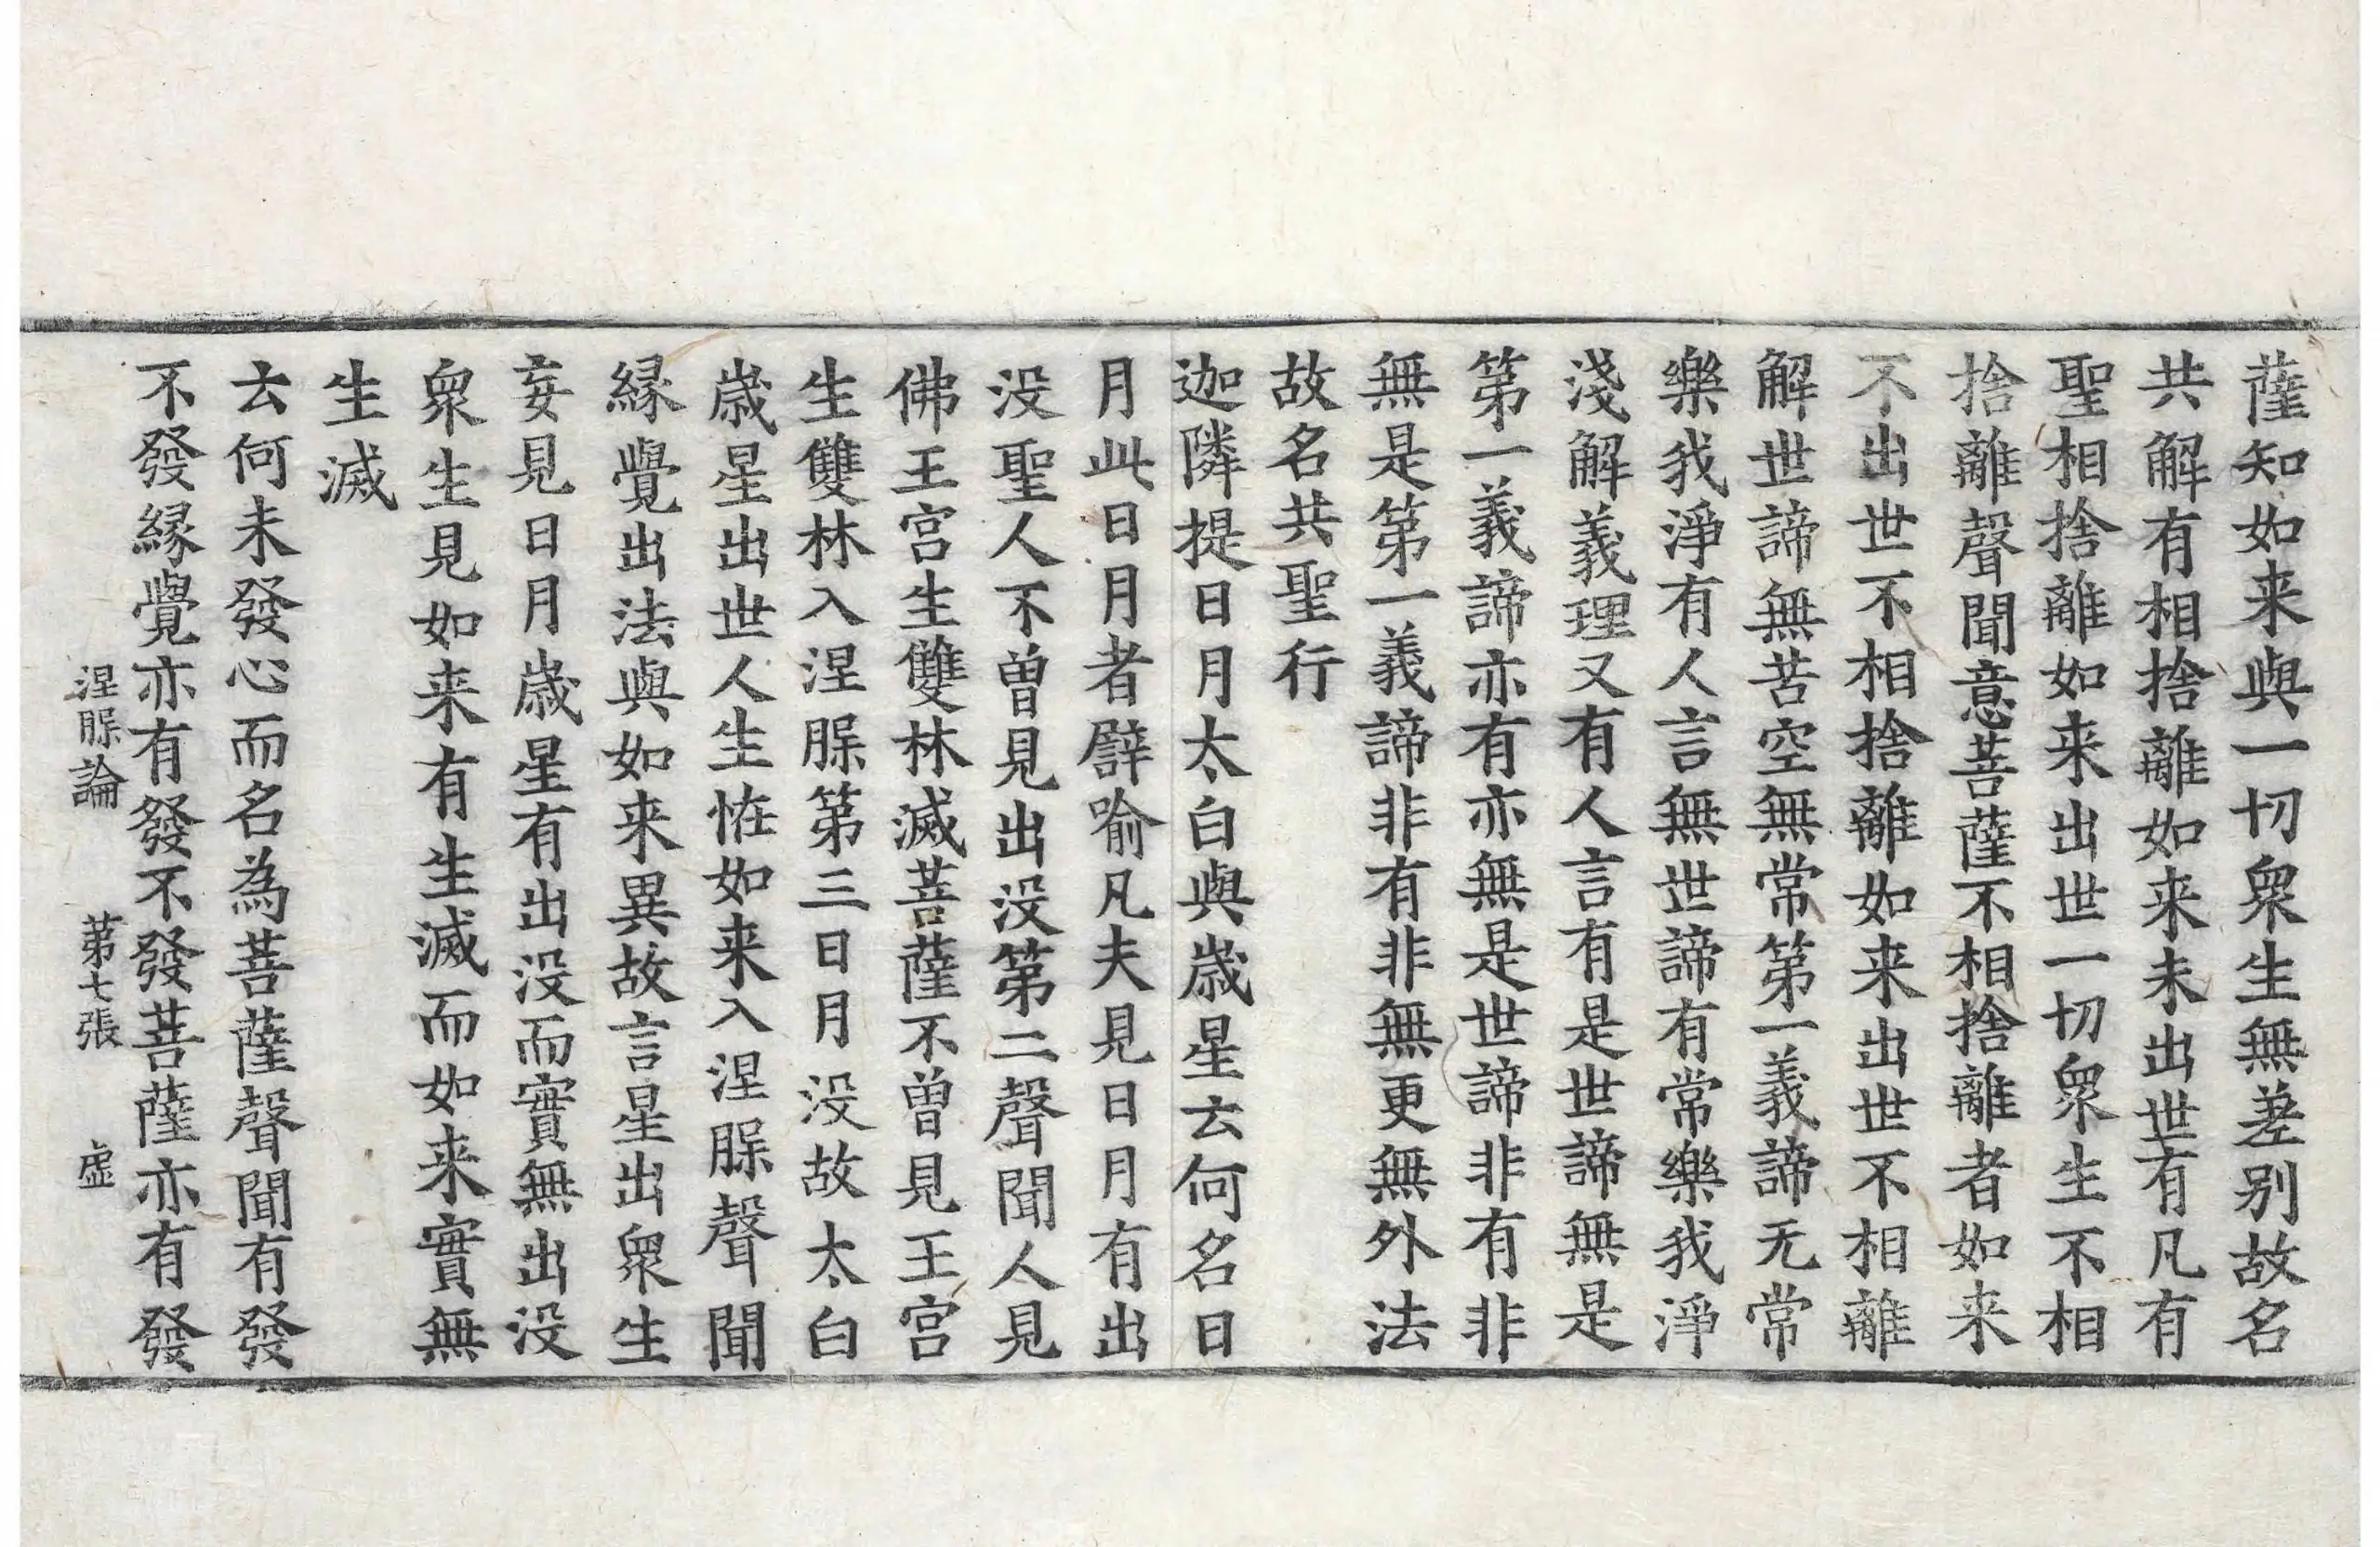 薩知如来與一切衆生無差别故名
共解有相捨離如来未出世有凡有
聖相捨離如来出世一切衆生不相
捨離聲聞意菩薩不相捨離者如来
不出世不相捨離如来出世不相離
解世諦無苦空無常第一義諦无常
樂我淨有人言無世諦有常樂我淨
淺解義理又有人言有是世諦無是
第一義諦亦有亦無是世諦非有非
無是第一義諦非有非無更無外法
故名共聖行
迦隣提日月太白與歳星云何名日
月此日月者譬喻凡夫見日月有出
没聖人不曽見出没第二聲聞人見
佛王宫生雙林滅菩薩不曽見王宫
生雙林入涅槃第三日月没故太白
歳星出世人生恠如来入涅槃聲聞
縁覺出法與如来異故言星出衆生
妄見日月歳星有出没而實無出没
衆生見如来有生滅而如来實無
生滅
云何未發心而名為菩薩聲聞有發
不發縁覺亦有發不發菩薩亦有發
涅槃論 第七張 虚